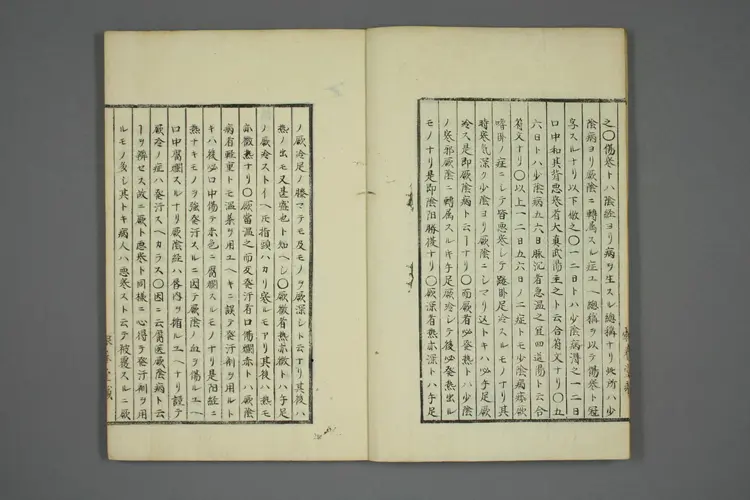 之〇傷寒トハ陰経ヨリ病ヲ生スル總稱ナリ此所ハ少
陰病ヨリ厥陰ニ轉属スル症ユヘ總稱ヲ以テ傷寒ト冠
ラスルナリ以下倣之〇一二日トハ少陰病得之一二日
口中和其背悪寒者大真武湯主之ト云合符文ナリ〇五
六日トハ少陰病五六日脉沉者急温之宜四逆湯ト云合
符文ナリ〇以上一二日五六日ノ二症トモ少陰病
嗜卧ノ症ニシテ皆悪寒シテ踡卧足冷スルモノナリ其
時寒気深ク少陰ヨリ厥陰ニシマリ込トキハ必手足厥
冷ス是即厥陰病ト云ーナリ〇而厥者必發熱トハ少陰
ノ寒邪厥陰ニ轉属スルキ手足厥冷シテ後必發熱出ル
モノナリ是即陰陽勝復ナリ〇厥深者熱亦深トハ手足
ノ厥冷足ノ膝マテモ及モノヲ厥深シト云ナリ其後ハ
熱ノ出モ又甚盛也ト知ヘシ〇厥微者熱亦微トハ手足
ノ厥冷ストイヘ𪜈指頭ハカリ寒ルモアリ其後ハ熱モ
亦微熱ナリ〇厥當温之而反發汗者口傷爛赤トハ厥陰
病者軽重トモ温薬ヲ用ユヘキニ誤テ發汗剤ヲ用ルト
キハ後必口中傷テ赤色ニ腐爛スルモノナリ是陽経ニ
熱ナキモノヲ強發汗スルニ因テ厥陰ノ血ヲ傷ルユヘ
口中腐爛スルナリ厥陰経ハ唇内ヲ循ルユヘナリ謹テ
厥冷ノ症ハ發汗スヘカラス〇因ニ云庸医厥陰病ト云
ーヲ辨セス故ニ厥ト悪寒ト同様ニ心得テ發汗剤ヲ用
ルモノ多シ其トキ病人ハ悪寒スト云テ被覆スルニ厥